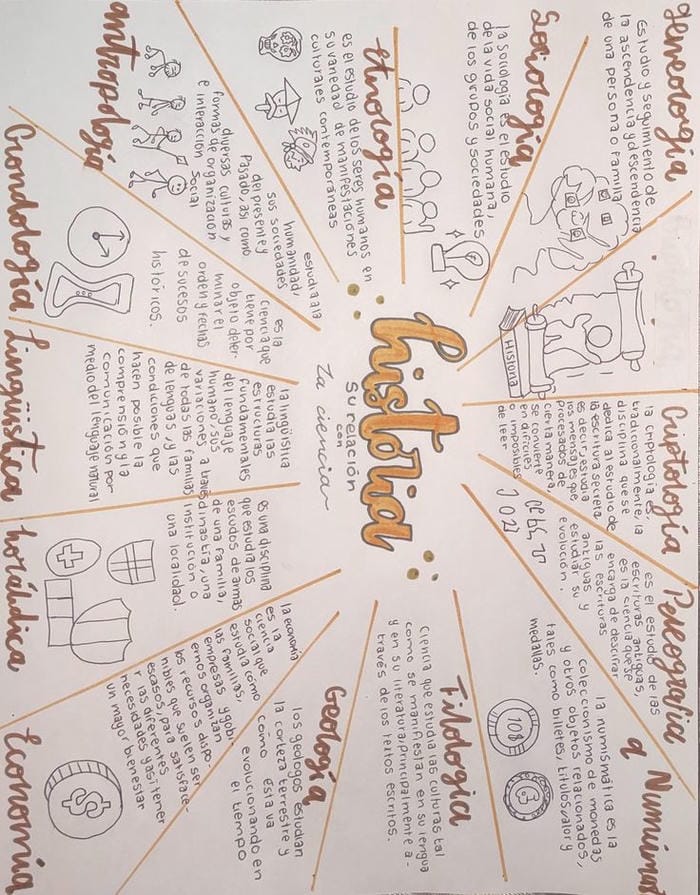 historia
Su relación
con
La ciencia
geneologia
Estudio y seguimiento de
la ascendencia y descendencia
de una persona o familia
Sociologia
la sociología es el estudio
de la vida social humana,
de los grupos y sociedades
Etnologia
es el estudio de los seres humanos en
su variedad de manifestaciones
culturales contemporáneas
antropologia
estudia a la
humanidad,
sus sociedades
del presente y
Pasado, así como
diversas culturas y
formas de organización
e interacción Social
Cronología
es la
ciencia que
tiene por
objeto deter-
minar el
orden y fechas
de sucesos
históricos.
Lingüistica
la lingüística
estudia las
estructuras
fundamentales
del lenguaje
humano, sus
variaciones a través
de todas las familias
de lenguas, y las
condiciones que
hacen posible la
comprensión y la
comunicación por
medio del lenguaje natural
heráldica
es una disciplina
que estudia los
escudos de armas
de una familia,
dinastía, una
Institución o
una localidad.
Economia
la economía
es la
ciencia
social que
estudia como
las familias,
empresas y gobi-
ernos organizan
los recursos dispo-
nibles que suelen ser
escasos, para satisface-
r las diferentes
necesidades y así tener
un mayor bienestar
$
Geología
los geologos estudian
la corteza terrestre y
como esta va
evolucionando en
el tiempo
Filologia
Ciencia que estudia las culturas tal
como se manifiestan en su lengua
y en su literatura, principalmente a-
través de los textos escritos.
Numismat
a
la numismática es la
coleccionismo de monedas
y otros objetos relacionados,
tales como billetes, titulos valor y
medallas.
10$
Paleografia
es el estudio de las
escrituras antiguas,
es la ciencia que se
encarga de descifrar
las escrituras
antiguas y
estudiar su
evolución.
Criptología
la criptología es,
tradicionalmente, la
disciplina que se
dedica al estudio de
la escritura secreta,
es decir, estudia
los mensajes que
procesados de
cierta manera,
se convierte
en difíciles
o imposibles
de leer
Historia